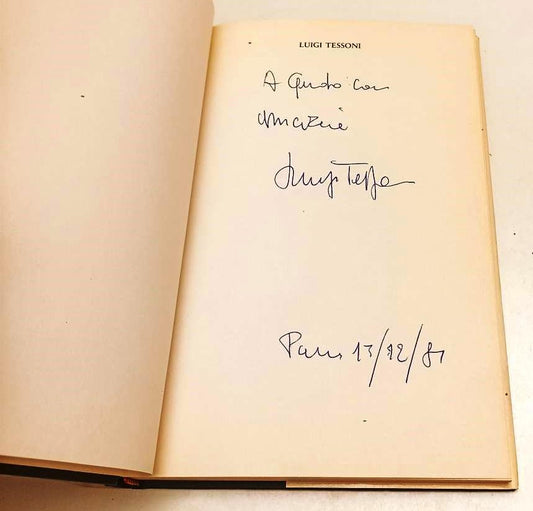 LUIGI TESSONI
A Guido con
amicizia
Luigi Tesso
Paris 13/12/81